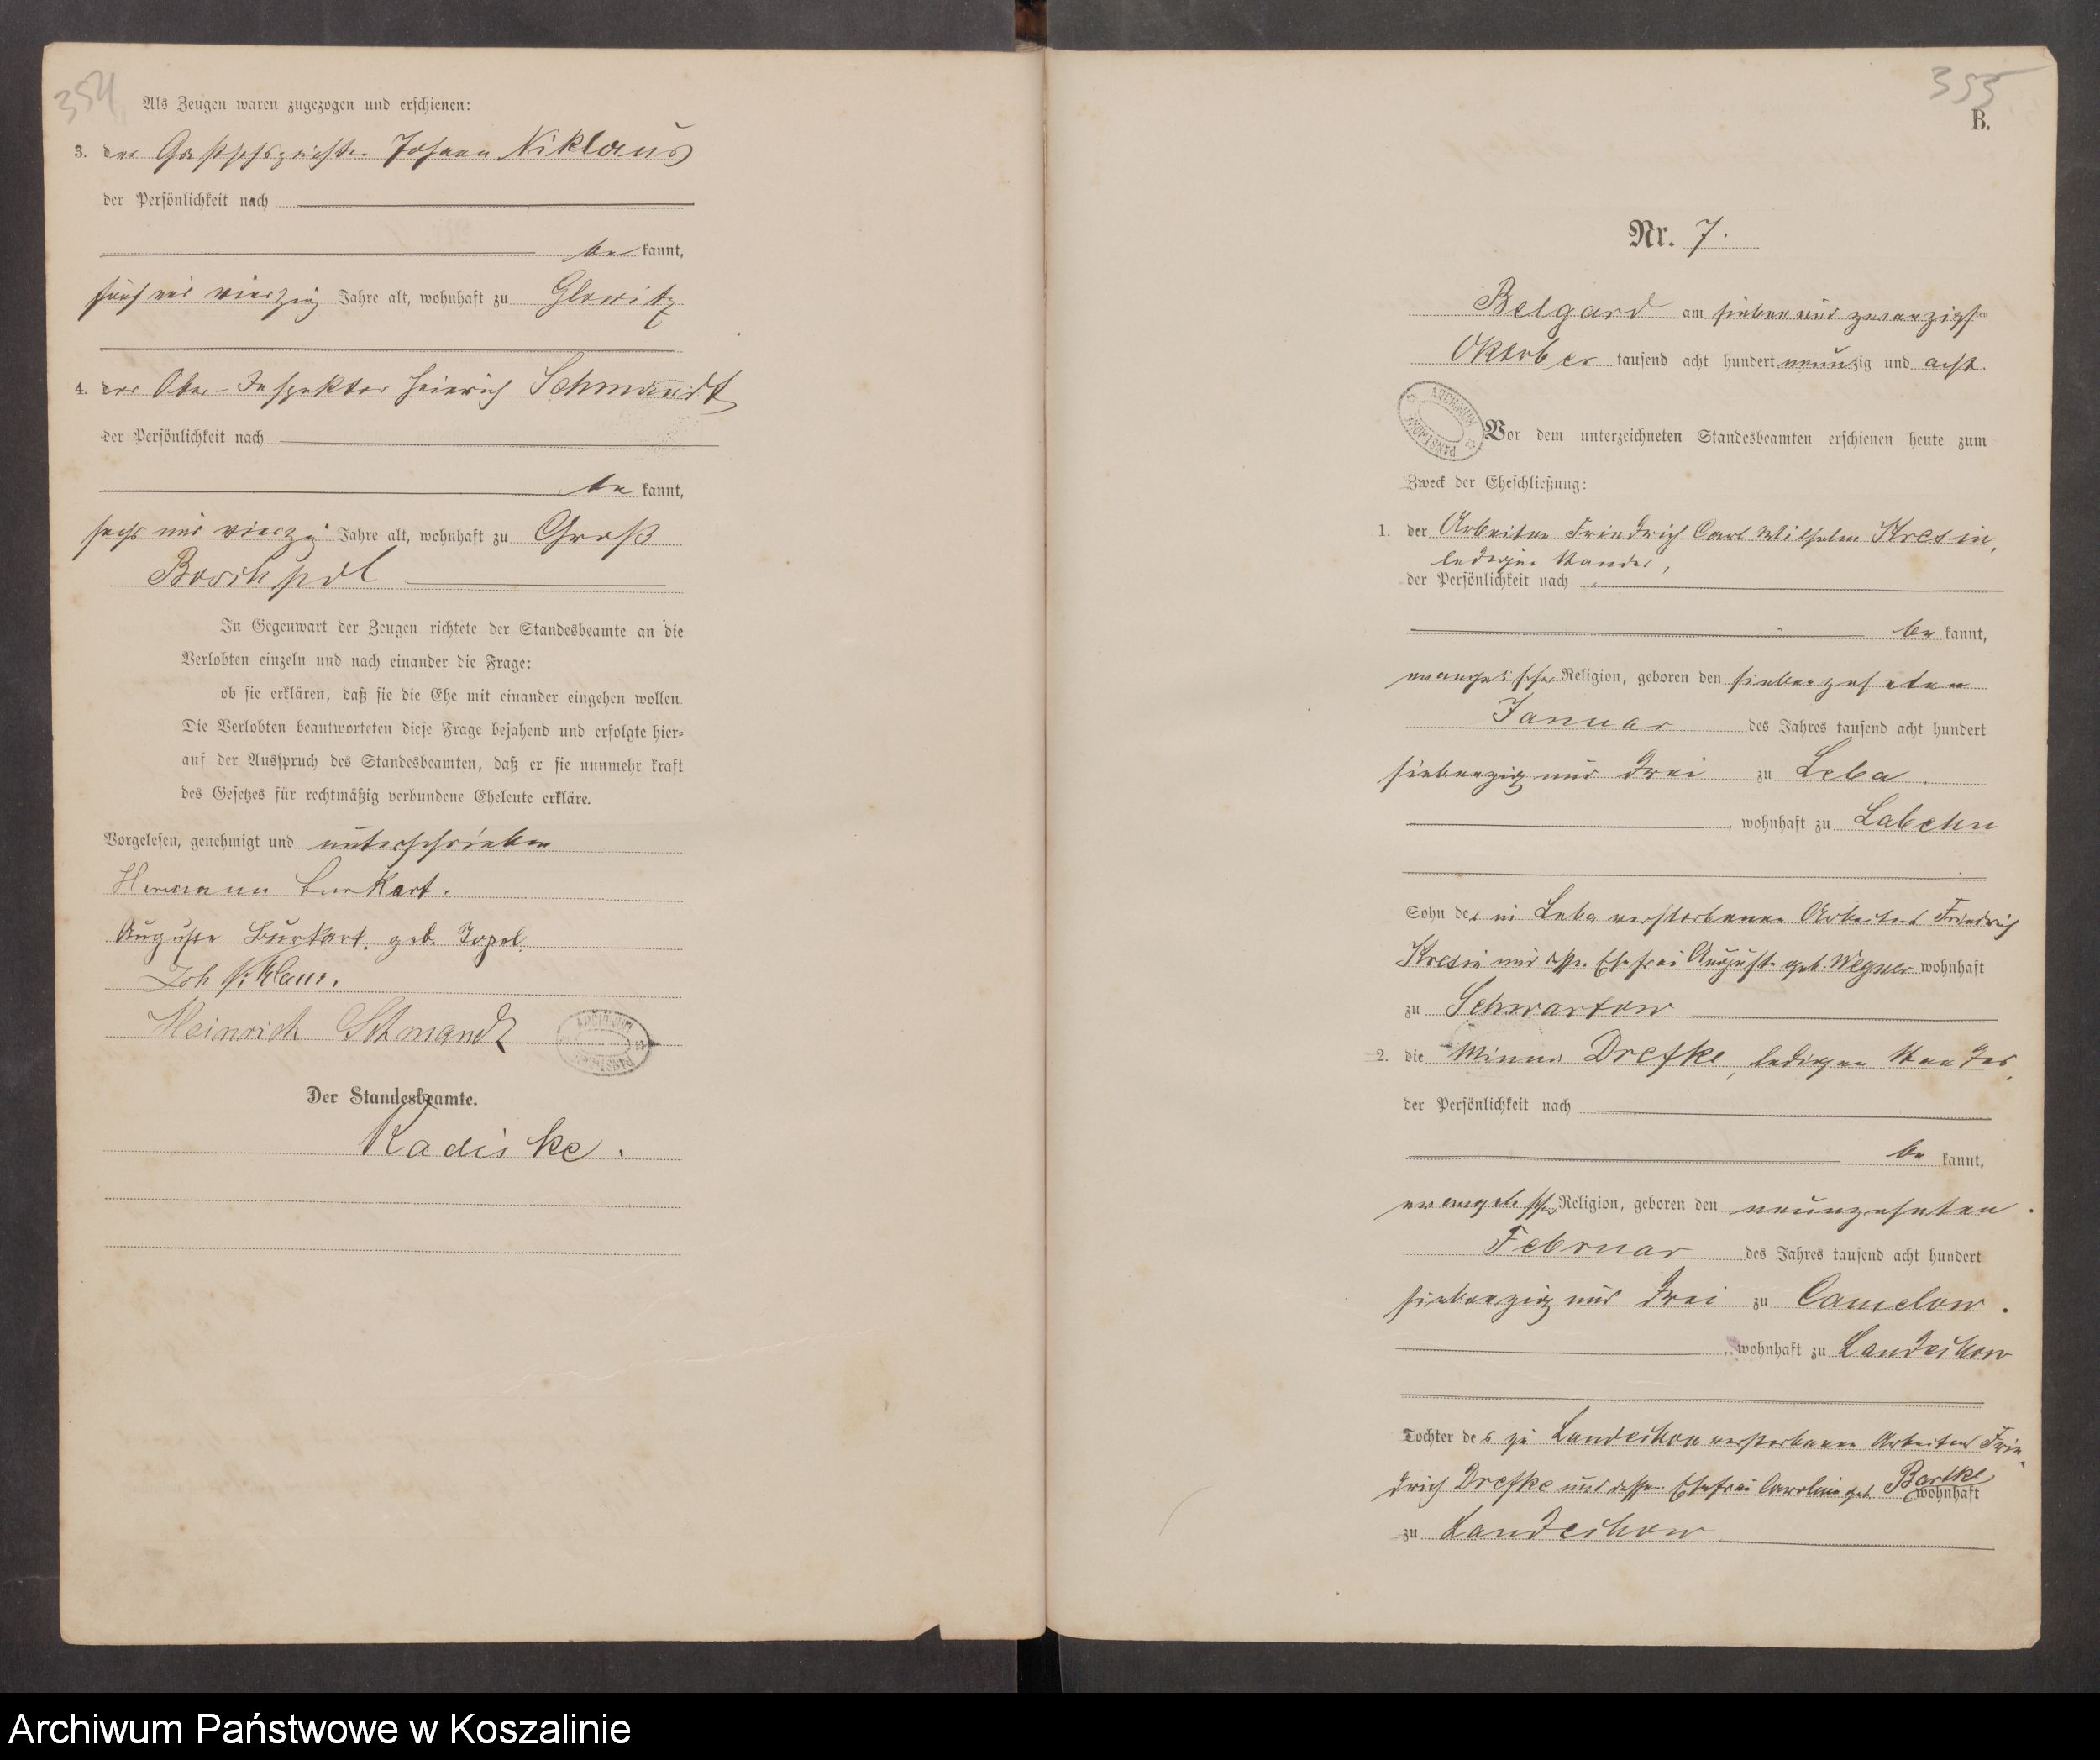 354
Als Zeugen waren zugezogen und erschienen:
3. der Johann Niklaus
der Persönlichkeit nach
be kannt,
fünf und vierzig Jahre alt, wohnhaft zu Glowitz
4. der Ober-Inspektor Heinrich Schmandt
der Persönlichkeit nach
be kannt,
sechs und vierzig Jahre alt, wohnhaft zu Groß
Boschpol
In Gegenwart der Zeugen richtete der Standesbeamte an die
Verlobten einzeln und nach einander die Frage:
ob sie erklären, daß sie die Ehe mit einander eingehen wollen.
Die Verlobten beantworteten diese Frage bejahend und erfolgte hier-
auf der Ausspruch des Standesbeamten, daß er sie nunmehr kraft
des Gesetzes für rechtmäßig verbundene Eheleute erkläre.
Vorgelesen, genehmigt und unterschrieben
Hermann Burkart.
Auguste Burkart. geb.
Joh Niklaus.
Heinrich Schmandt
Der Standesbeamte.
Radiske.
355
B.
Nr. 7.
Belgard am sieben und zwanzigsten
Oktober tausend acht hundert neunzig und acht.
ARCHIWUM PAŃSTWOWE
Vor dem unterzeichneten Standesbeamten erschienen heute zum
Zweck der Eheschließung:
1. der Arbeiter Friedrich Carl Wilhelm Kresin,
ledigen Standes,
der Persönlichkeit nach
be kannt,
evangelischer Religion, geboren den siebenzehnten
Januar des Jahres tausend acht hundert
siebenzig und drei zu Leba
, wohnhaft zu Labehn
Sohn des in Leba verstorbenen Arbeiters Friedrich
Kresin und dess. Ehefrau Auguste geb. Wegner wohnhaft
zu Schwartow
2. die Minna Drefke, ledigen Standes,
der Persönlichkeit nach
be kannt,
evangelischer Religion, geboren den neunzehnten
Februar des Jahres tausend acht hundert
siebenzig und drei zu Camelow.
, wohnhaft zu Landechow
Tochter des zu Landechow verstorbenen Arbeiters Frie-
drich Drefke und dessen Ehefrau Caroline geb. Bartke
wohnhaft
zu Landechow
Archiwum Państwowe w Koszalinie